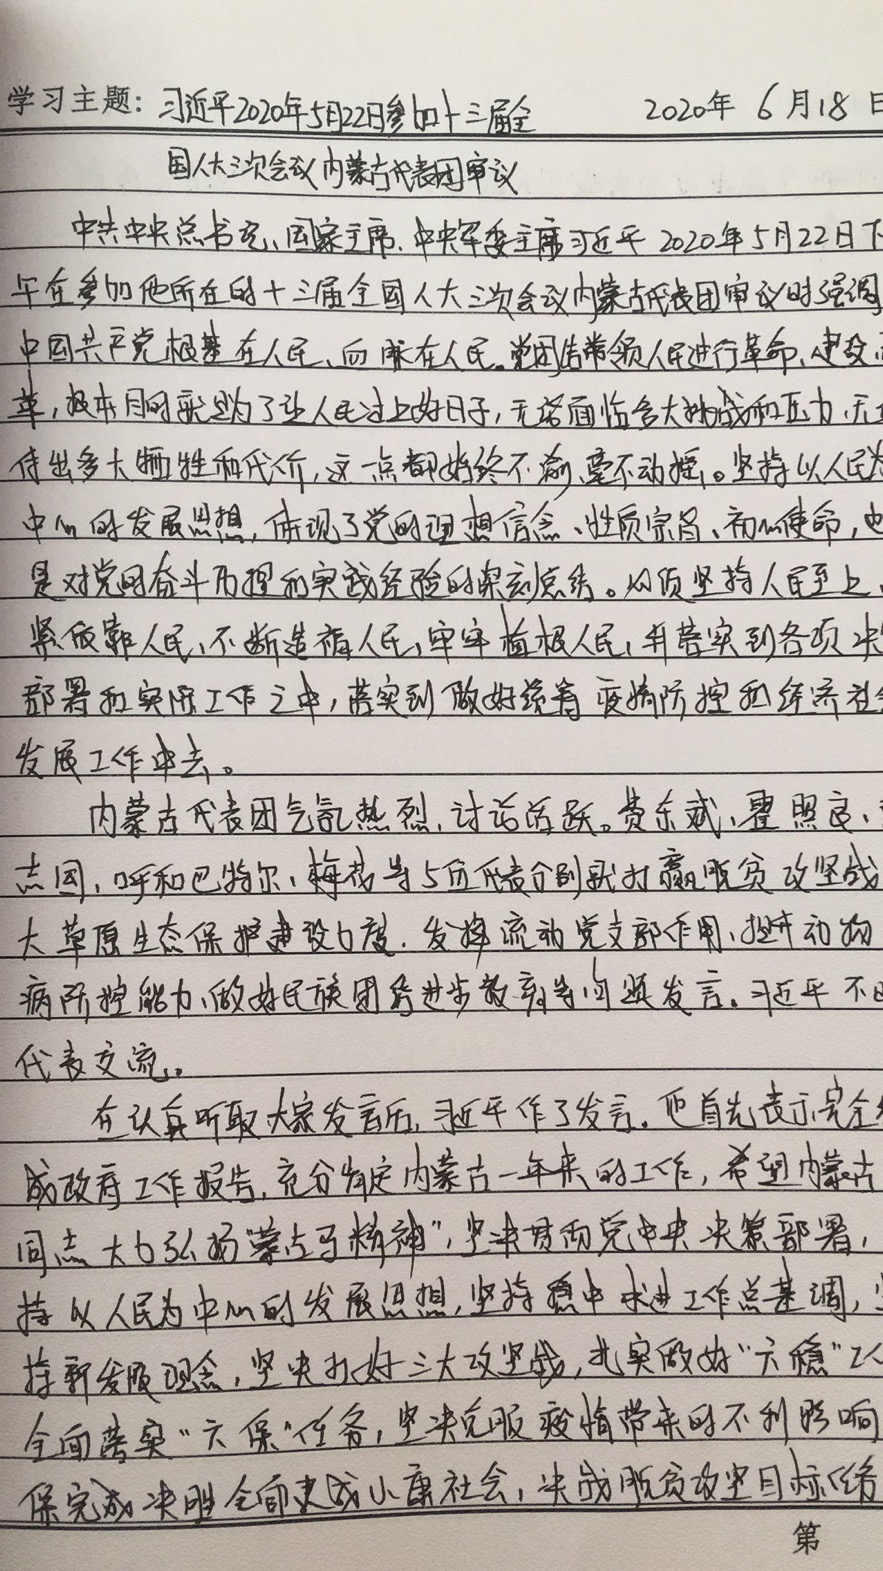 学习主题：习近平2020年5月22日参加十三届全 2020年 6月18日
国人大三次会议内蒙古代表团审议
中共中央总书记、国家主席、中央军委主席习近平2020年5月22日下
午在参加他所在的十三届全国人大三次会议内蒙古代表团审议时强调
中国共产党根基在人民、血脉在人民。党团结带领人民进行革命、建设、
革，根本目的就是为了让人民过上好日子，无论面临多大挑战和压力，无
付出多大牺牲和代价，这一点都始终不渝、毫不动摇。坚持以人民为
中心的发展思想，体现了党的理想信念、性质宗旨、初心使命，也
是对党的奋斗历程和实践经验的深刻总结。必须坚持人民至上、
紧依靠人民、不断造福人民、牢牢植根人民，并落实到各项决
部署和实际工作之中，落实到做好统筹疫情防控和经济社会
发展工作中去。
内蒙古代表团气氛热烈，讨论活跃。费东斌、霍照良、
志国、呼和巴特尔、梅花等5位代表分别就打赢脱贫攻坚战
大草原生态保护建设力度、发挥流动党支部作用、提升动物
病防控能力、做好民族团结进步教育等问题发言。习近平不时
代表交流。
在认真听取大家发言后，习近平作了发言。他首先表示完全
成政府工作报告，充分肯定内蒙古一年来的工作，希望内蒙古
同志大力弘扬“蒙古马精神”，坚决贯彻党中央决策部署，
持以人民为中心的发展思想，坚持稳中求进工作总基调，坚
持新发展理念，坚决打好三大攻坚战，扎实做好“六稳”工
全面落实“六保”任务，坚决克服疫情带来的不利影响
保完成决胜全面建成小康社会，决战脱贫攻坚目标任务
第